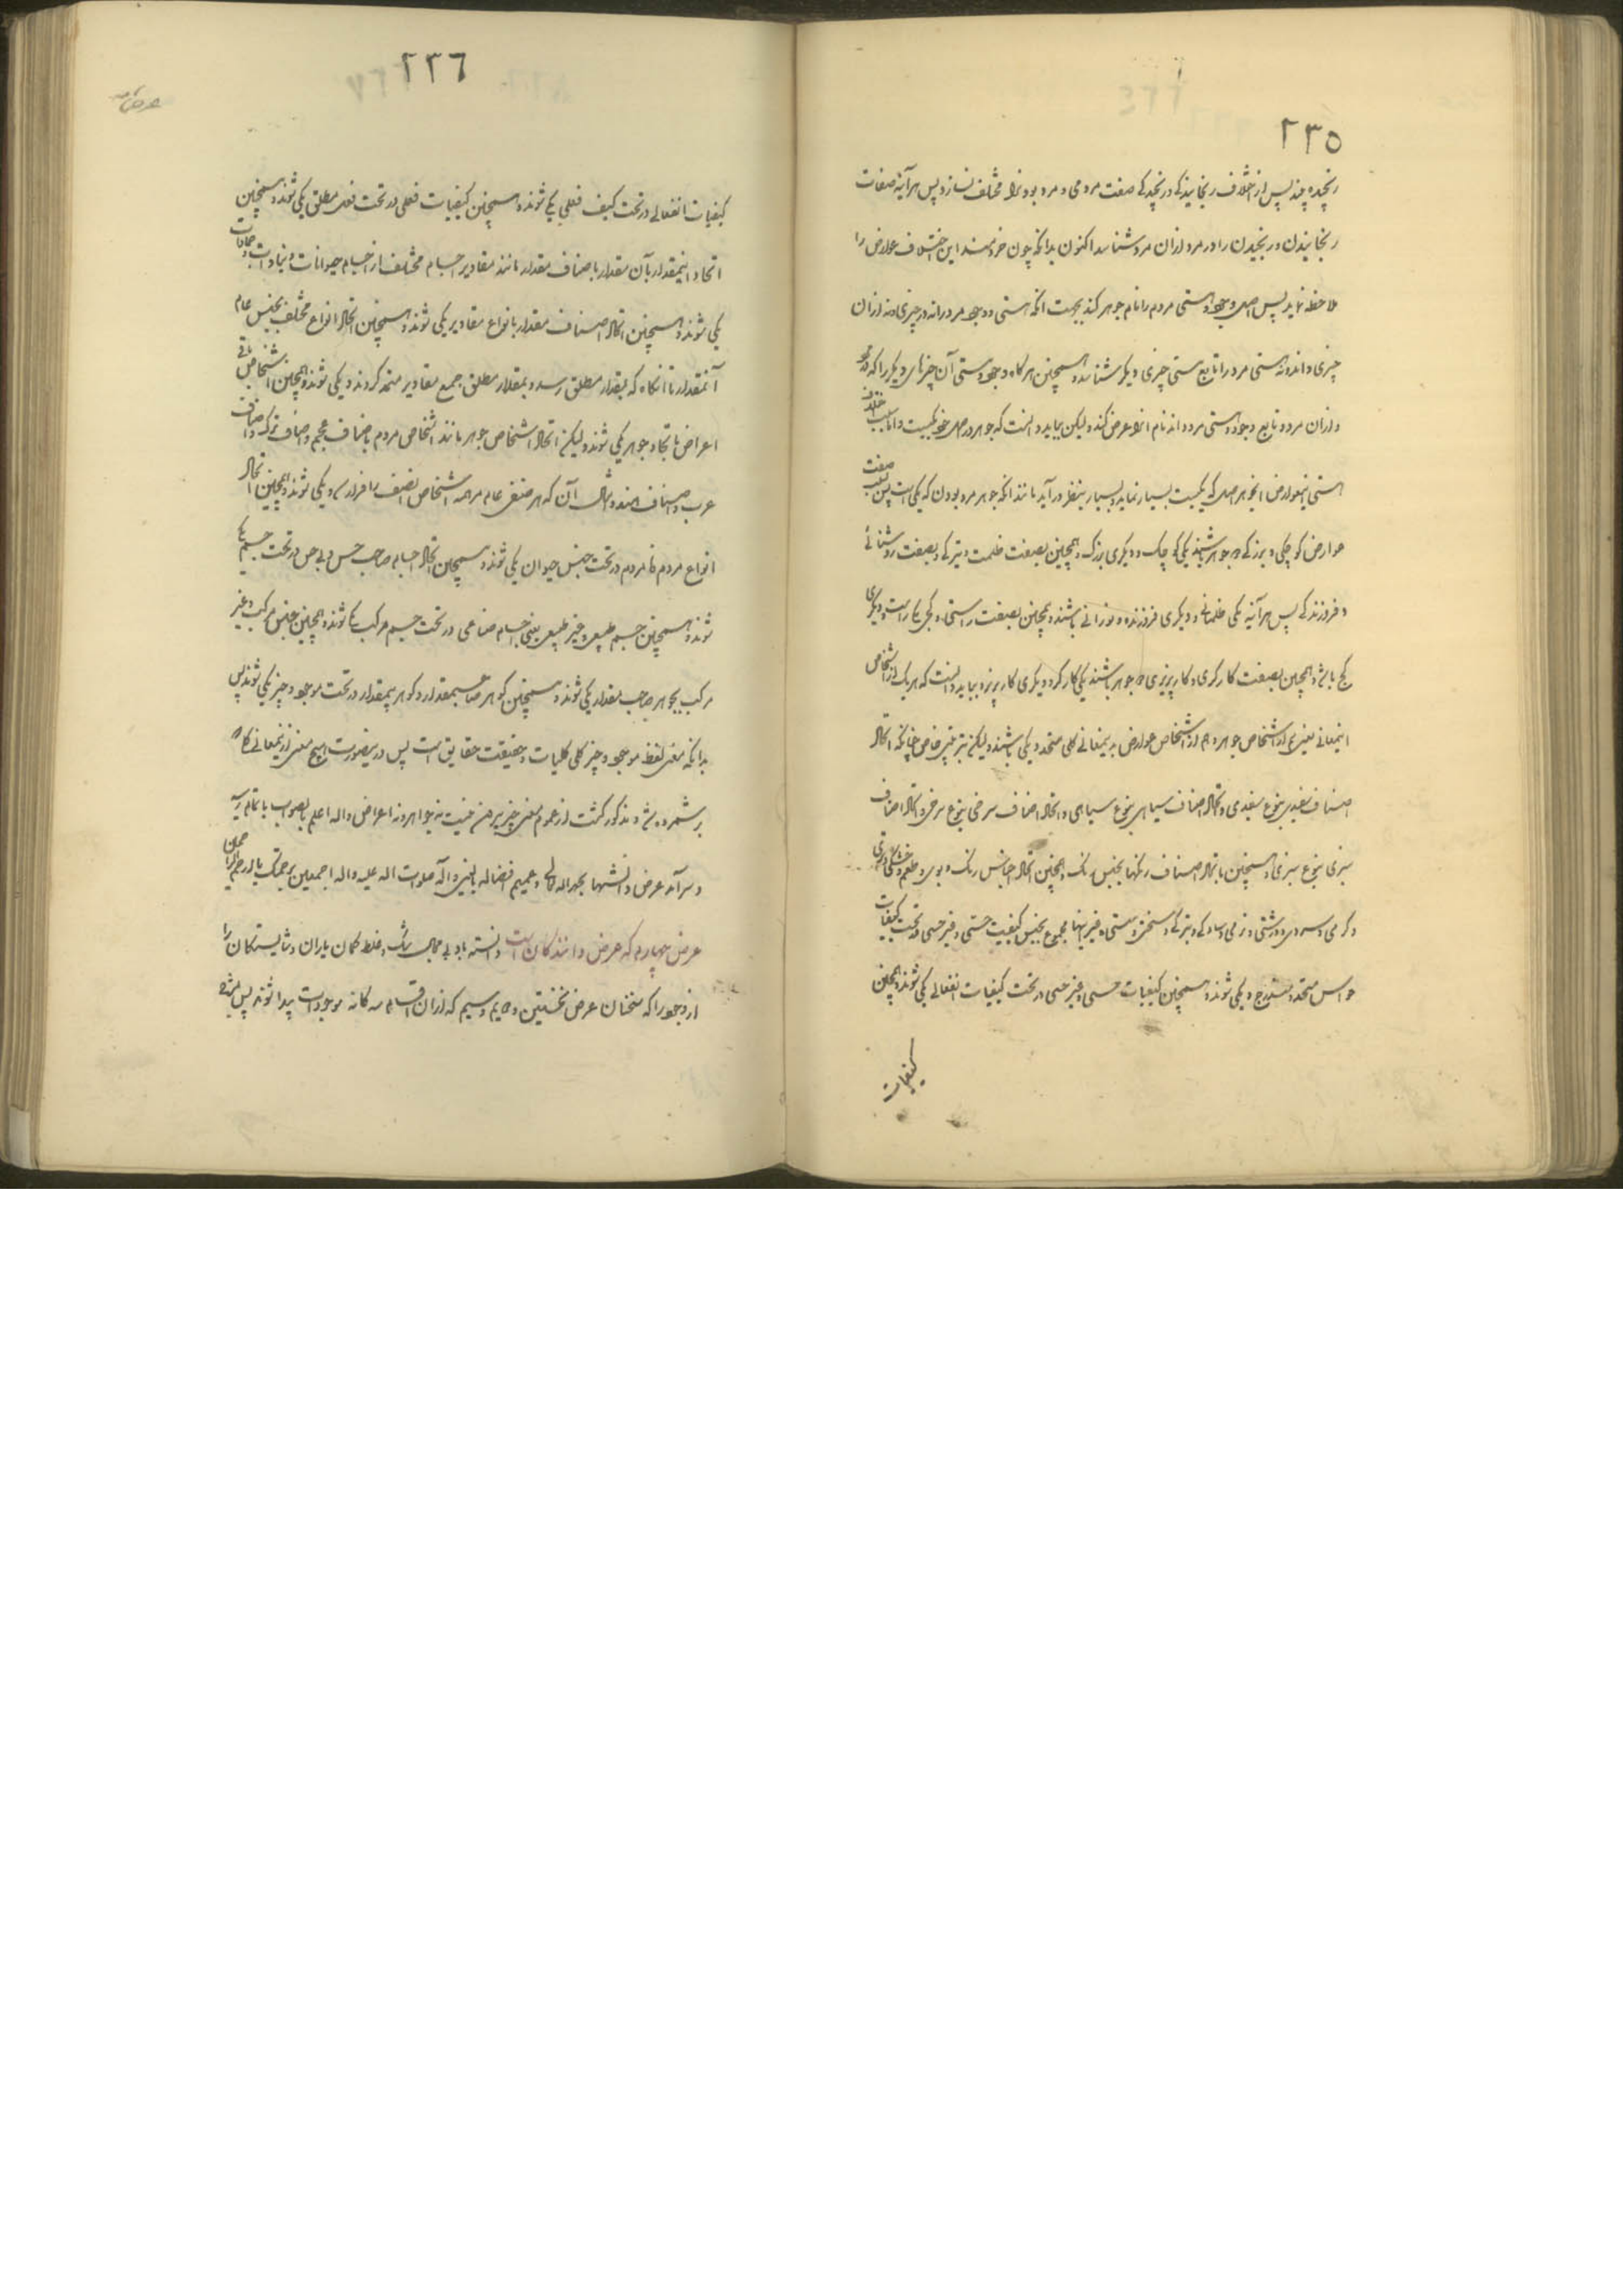 ٢٣٥
رنجیده چند پس از خلاف رنجانیدگی و رنجیدگی صفت مردمی و مرد بود او را مختلف نسازد پس هرآینه صفات
رنجانیدن و رنجیدن را در مرد و از آن مرد شناسد اکنون بدانکه چون خردمند این اختلاف عوارض را
ملاحظه نماید پس اصل وجود و هستی مردم را نام جوهر کند بجهت آنکه هستی و وجود مرد را نه در چیزی و نه از آن
چیزی داند و نه هستی مرد را تابع هستی چیزی دیگر شناسد و همچنین هر گاه وجود و هستی آن چیزهای دیگر را که در مرد
و از آن مرد و تابع وجود و هستی مرد داند نام آنرا عرض کند و لیکن بباید دانست که جوهر در اصل خود یکیست و اما بسبب اختلاف
هستی اینعوارض آنجوهر اصل که یکیست بسیار نماید و بسیار بنظر درآید مانند آنکه جوهر مرد بودن که یکی است پس بسبب صفت
عوارض کوچکی و بزرگی دو جوهر باشند یکی کوچک و دیگری بزرگ و همچنین بصفت ظلمت و تیرگی و بصفت روشنائی
و فروزندگی پس هرآینه یکی ظلمانی و دیگری فروزنده و نورانی باشند و همچنین بصفت راستی و کجی یکی راست و دیگری
کج باشد و همچنین بصفت کارگری و کارپزیری دو جوهر باشند یکی کارگر و دیگری کارپزیر و بباید دانست که هر یک از اشخاص
اینمعانی یعنی هم از اشخاص جوهر و هم از اشخاص عوارض بدینمعانی کلی متحد و یکی باشند و لیکن بترتیبی خاص چنانکه اتحاد
اصناف سفیدی بنوع سفیدی و اتحاد اصناف سیاهی بنوع سیاهی و اتحاد اصناف سرخی بنوع سرخی و اتحاد اصناف
سبزی بنوع سبزی و همچنین باتحاد اصناف رنگها بجنس رنگ و همچنین اتحاد اجناس رنگ و بوی و طعم و خشکی و تری
و گرمی و سردی و درشتی و نرمی و سادگی و تیزگی و سختی و سستی و غیر اینها مجموع بجنس کیفیت حسی و غیر حسی در تحت کیفیات
حواس متحد و مندرج و یکی شوند و همچنین کیفیات حسی و غیر حسی در تحت کیفیات انفعالی یکی شوند و همچنین
کیفیات
٢٣٦
عرض
کیفیات انفعالی در تحت کیف فعلی یکی شوند و همچنین کیفیات فعلی در تحت فعل مطلق یکی شوند و همچنین
اتحاد اینمقدار بآن مقدار باصناف مقدار مانند مقادیر اجسام مختلف از اجسام حیوانات و نباتات و جمادات
یکی شوند و همچنین اتحاد اصناف مقدار بانواع مقادیر یکی شوند و همچنین اتحاد انواع مختلف بجنس عام
آنمقدار تا آنگاه که بمقدار مطلق رسد و بمقدار مطلق جمیع مقادیر متحد گردند و یکی شوند و همچنین اشخاص باقی
اعراض باتحاد جوهر یکی شوند و لیکن اتحاد اشخاص جوهر مانند اشخاص مردم باصناف عجم و اصناف ترک و اصناف
عرب و اصناف هند و امثال آن که هر صنفی عام مر همه اشخاص آنصنف را فرارسد و یکی شوند و همچنین اتحاد
انواع مردم و نامردم در تحت جنس حیوان یکی شوند و همچنین اتحاد اجسام صاحب حس و بی حس در تحت جسم یکی
شوند و همچنین جسم طبیعی و غیر طبیعی یعنی اجسام صناعی در تحت جسم مرکب یکی شوند و همچنین جنس مرکب و غیر
مرکب بجوهر صاحب مقدار یکی شوند و همچنین گوهر صاحبمقدار و گوهر بیمقدار در تحت موجود و چیز یکی شوند پس
بدانکه معنی لفظ موجود و چیز کلی کلیات و حقیقت حقایق است پس درینصورت هیچ معنی از اینمعانی که
برشمرده شد و مذکور گشت از عموم معنی چیز بیرون نیست نه جواهر و نه اعراض والله اعلم بالصواب باتمام رسید
و سرآمد عرض دانشها بحمد الله تعالی و عمیم افضاله بالنبی و آله صلوات الله علیه و آله اجمعین برحمتک یا ارحم الراحمین
عرض چهارم که عرض دانندگان است دانسته باد بی مجال شک و غلط گمان یاران و شایستگان را
از وجود را که سخنان عرض نخستین و دویم و سیم که از آن اقسام سه گانه موجودات پیدا شوند پس